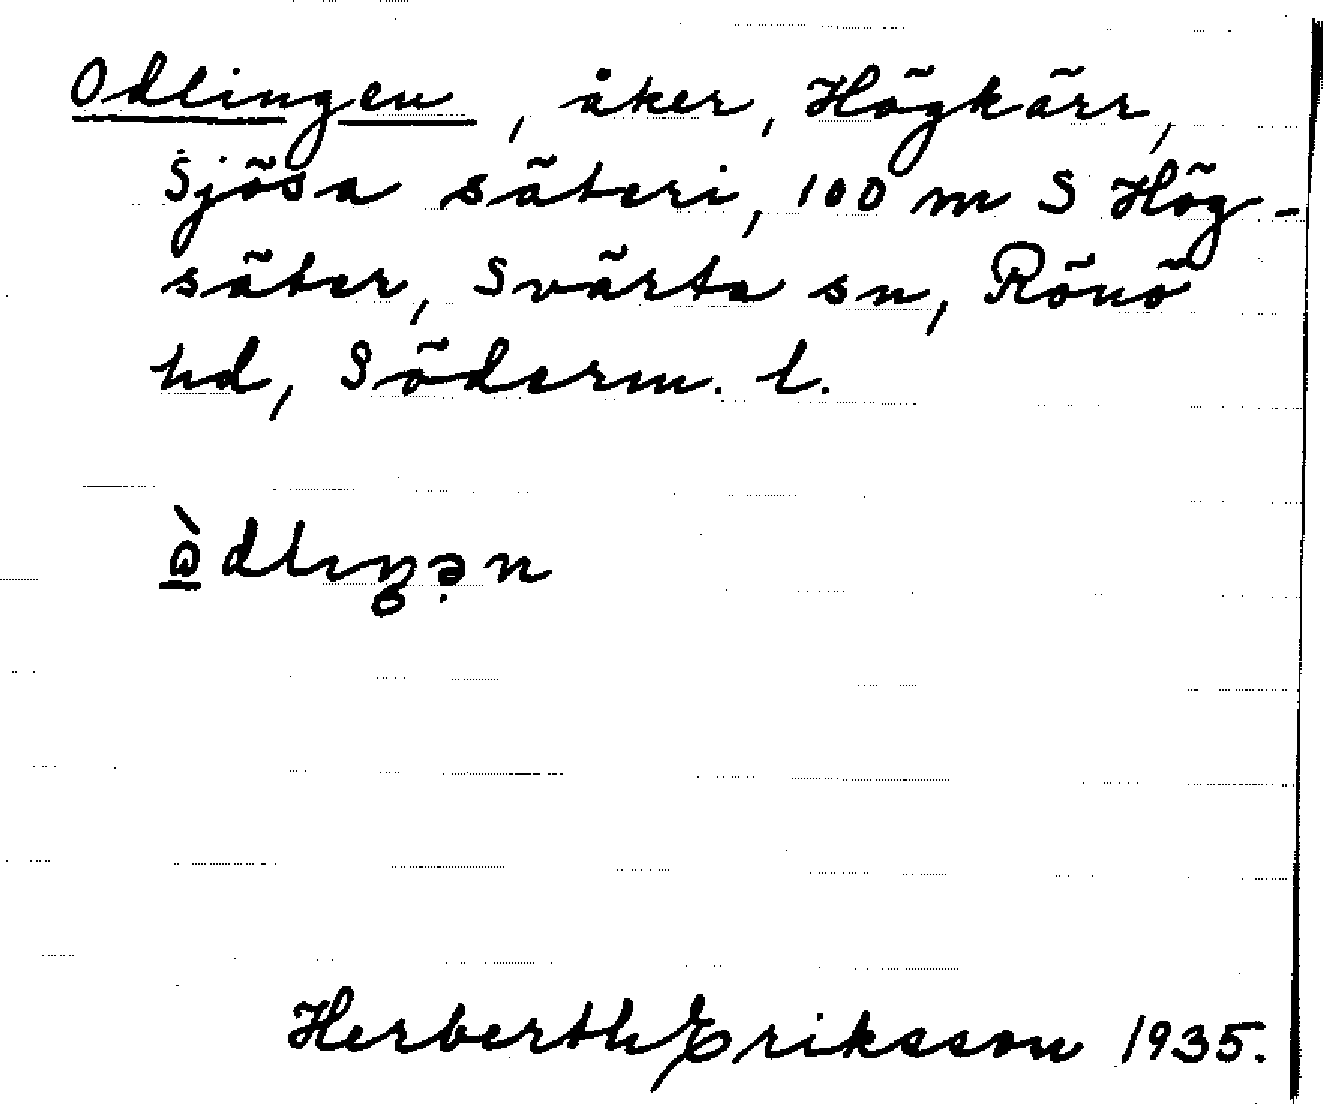 Odlingen, åker, Högkärr,
Sjösa säteri, 100 m S Hög-
säter, Svärta sn, Rönö
hd, Söderm. l.
ò̠dlɪŋə̣n
Herberth Eriksson 1935.